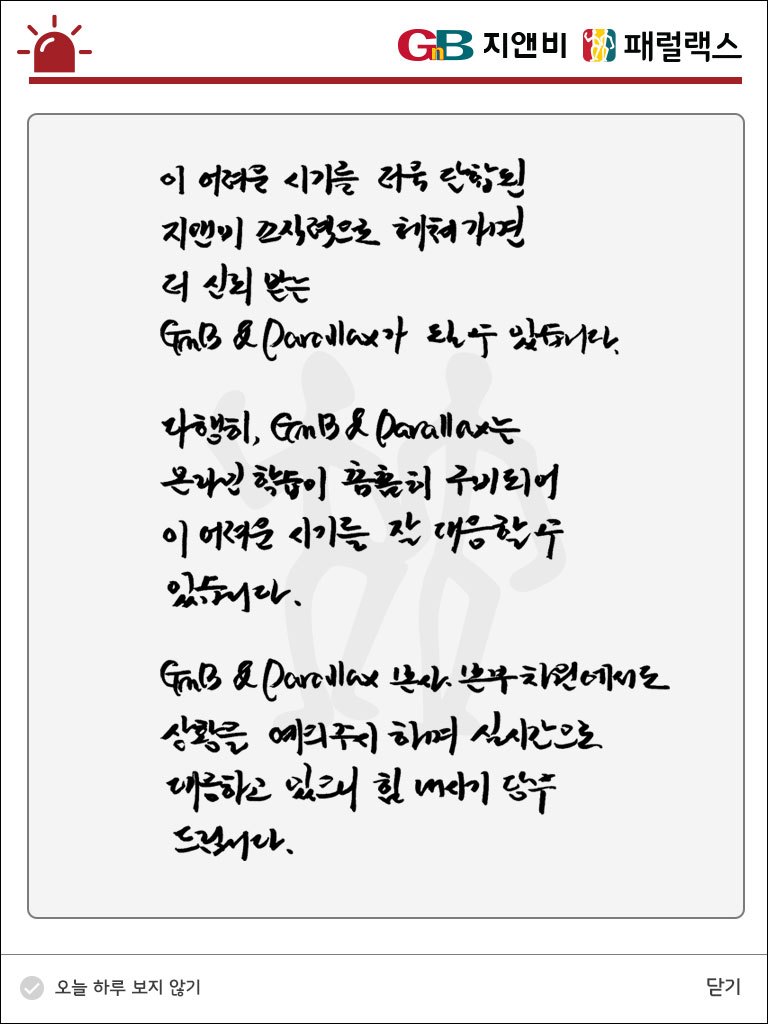 GnB 지앤비 패럴랙스
이 어려운 시기를 더욱 단합된
지앤비 조직력으로 헤쳐가면
더 신뢰 받는
GnB & Parallax가 될 수 있습니다.
다행히, GnB & Parallax는
온라인 학습이 꼼꼼히 구비되어
이 어려운 시기를 잘 대응할 수
있습니다.
GnB & Parallax 본사. 본부 차원에서도
상황을 예의주시 하며 실시간으로
대응하고 있으니 힘 내시기 당부
드립니다.
오늘 하루 보지 않기
닫기